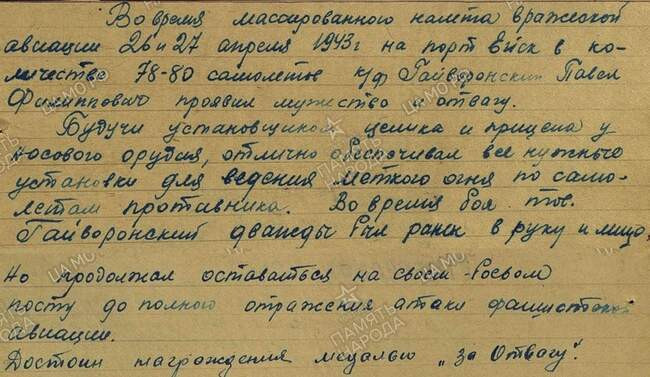 Во время массированного налета вражеской
авиации 26 и 27 апреля 1943г на порт Ейск в ко-
личестве 78-80 самолетов к/ф Гайворонский Павел
Филиппович проявил мужество и отвагу.
Будучи установщиком целика и прицела у
носового орудия, отлично обеспечивал все нужные
установки для ведения меткого огня по само-
летам противника. Во время боя тов.
Гайворонский дважды был ранен в руку и лицо,
но продолжал оставаться на своем боевом
посту до полного отражения атаки фашистской
авиации.
Достоин награждения медалью „За Отвагу".